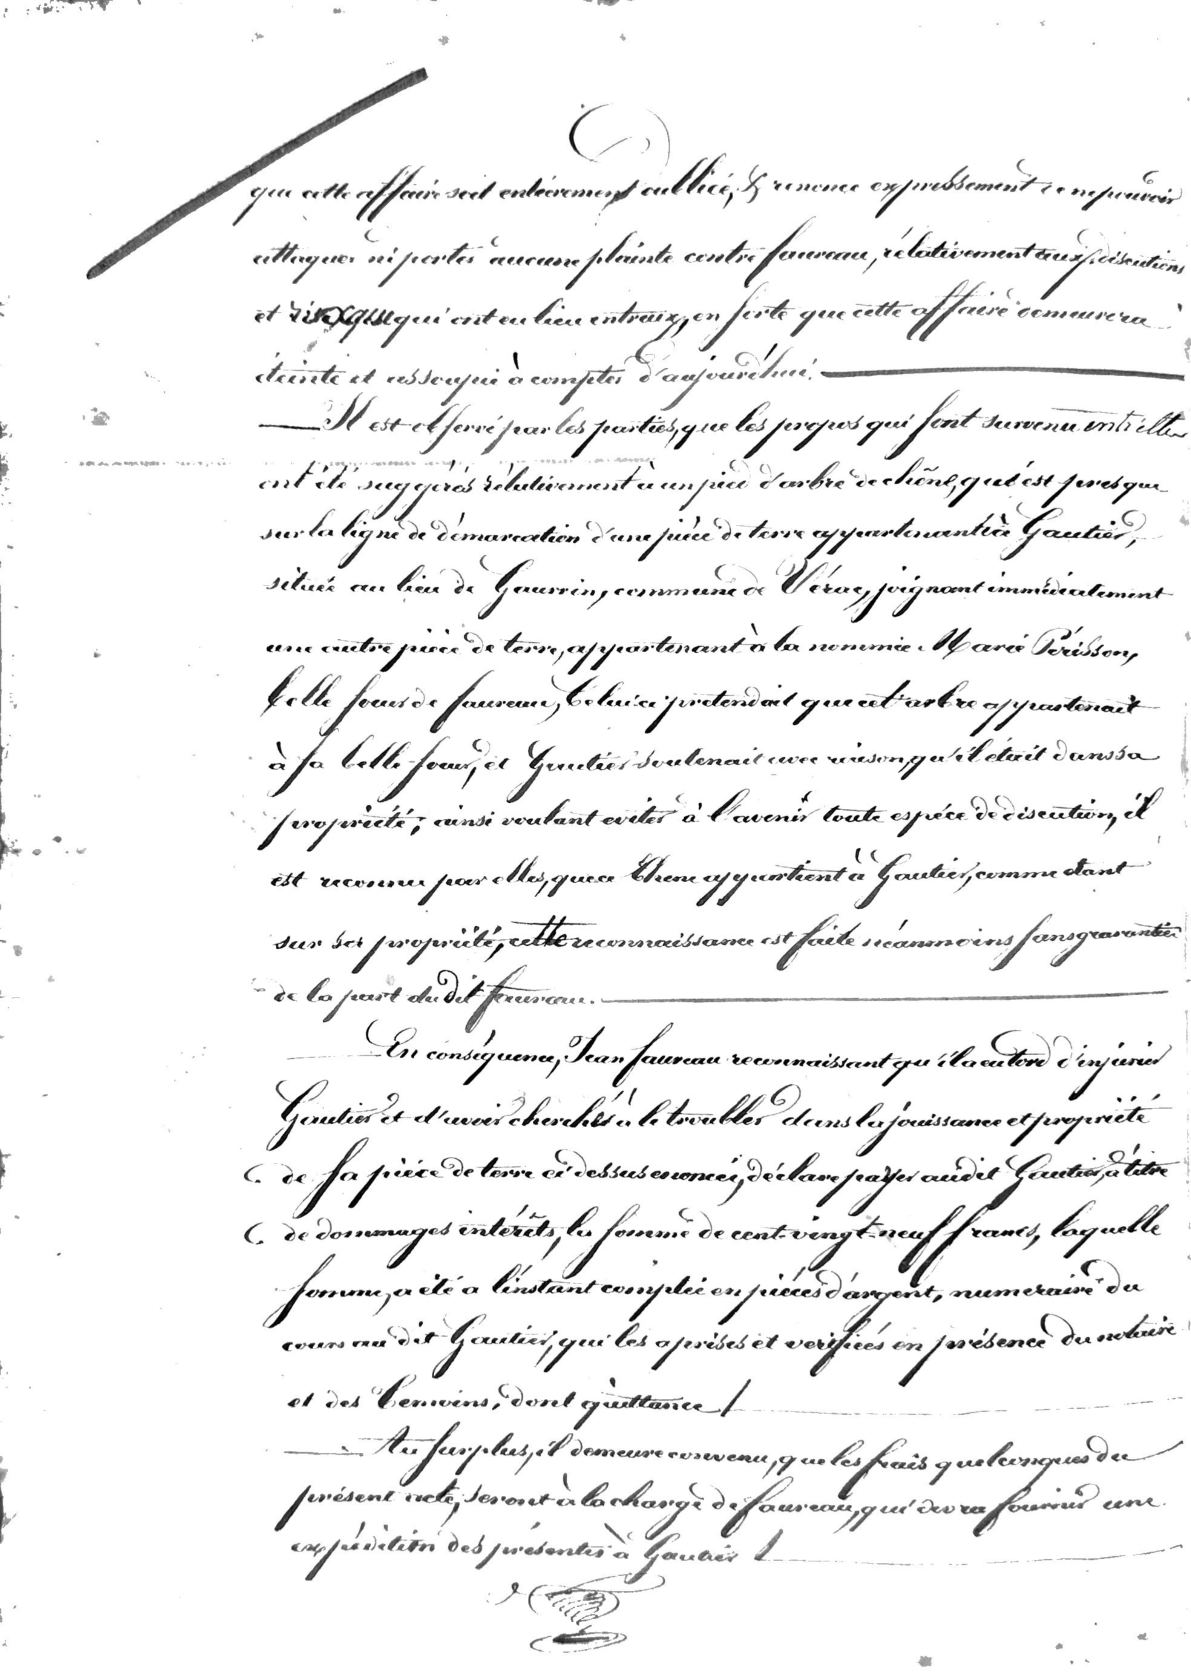 que cette affaire soit entièrement oubliée, & renonce expressement de ne pouvoir
attaquer ni porter aucune plainte contre faureau, rélativement aux discutions
et rixe qui ont eu lieu entraux, en sorte que cette affaire demeurera
éteinte et assoupie à compter d'aujourd'hui.
Il est observé par les parties, que les propos qui sont survenu entr'elles
ont été suggérés rélativement à un pied d'arbre de chêne, qui est presque
sur la ligne de démarcation d'une pièce de terre appartenant à Gautier,
située au lieu de Gauvrin, commune de Vérac, joignant immédiatement
une autre pièce de terre, appartenant à la nommée Marie Périsson,
belle soeur de faureau, Celui ci prétendait que cet arbre appartenait
à sa belle-soeur, et Gautier soutenait avec raison, qu'il était dans sa
propriété; ainsi voulant eviter à l'avenir toute espéce de discution, il
est reconnu par elles, que ce Chene appartient à Gautier, comme étant
sur sa propriété, cette reconnaissance est faite néanmoins sans garantie
de la part du dit faureau.
En conséquence, Jean faureau reconnaissant qu'il a eu tord d'injurier
Gautier et d'avoir cherché à le troubler dans la jouissance et propriété
de sa pièce de terre ci dessus enoncée, déclare payer au dit Gautier, à titre
de dommages intérêts, la somme de cent-vingt-neuf francs, laquelle
somme, a été a l'instant comptée en pièces d'argent, numeraire du
cours au dit Gautier, qui les a prises et verifiées en présence du notaire
et des temoins, dont quittance /
Au surplus, il demeure convenu, que les frais quelconques du
présent acte, seront à la charge de faureau, qui devra fournir une
expédition des présentes à Gautier /